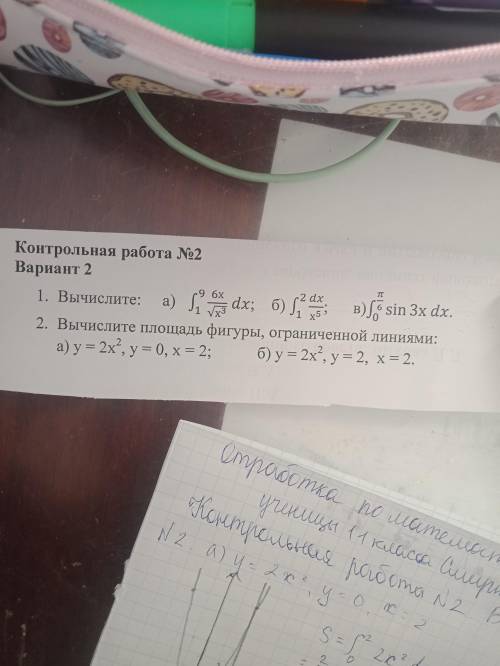 Контрольная работа №2
Вариант 2
1. Вычислите: а) ∫₁⁹ 6x/√x³ dx; б) ∫₁² dx/x⁵; в) ∫₀^(π/6) sin 3x dx.
2. Вычислите площадь фигуры, ограниченной линиями:
а) y = 2x², y = 0, x = 2; б) y = 2x², y = 2, x = 2.
Отработка по математ
ученицы 11 класса Смирн
Контрольная работа N2. В
N2. а) y = 2x², y = 0, x = 2
S = ∫₀² 2x² d